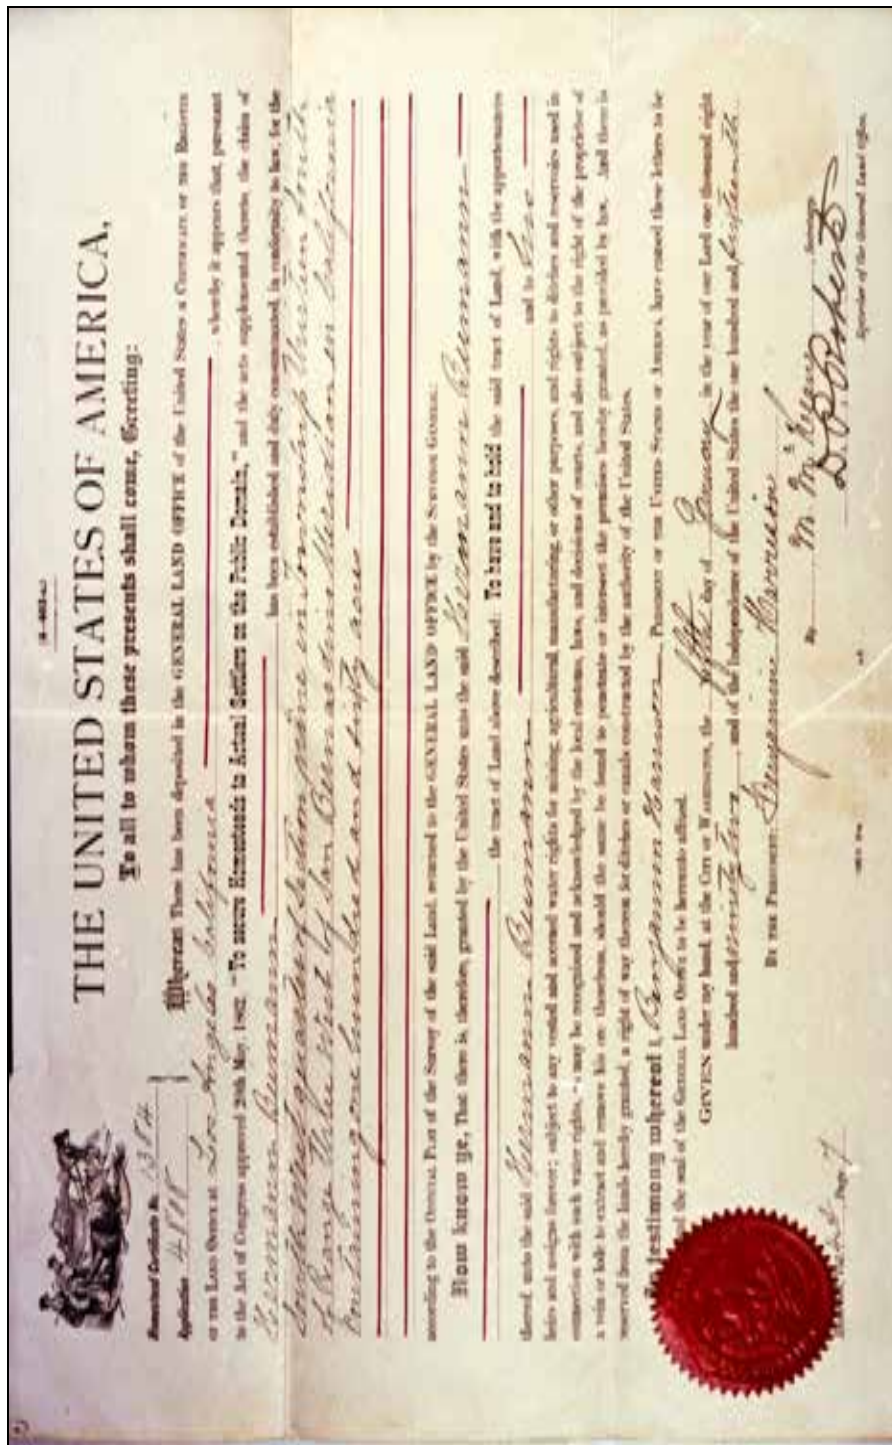 THE UNITED STATES OF AMERICA,
To all to whom these presents shall come, Greeting:
Homestead Certificate No. 1384
Application 4818
Whereas There has been deposited in the GENERAL LAND OFFICE of the United States a CERTIFICATE OF THE REGISTER
OF THE LAND OFFICE at Los Angeles California whereby it appears that, pursuant
to the Act of Congress approved 20th May, 1862, "To secure Homesteads to Actual Settlers on the Public Domain," and the acts supplemental thereto, the claim of
Hermann Bumann has been established and duly consummated, in conformity to law, for the
South West quarter of Section nine in Township thirteen South
of Range three West of San Bernardino Meridian in California
containing one hundred and sixty acres
according to the OFFICIAL PLAT of the Survey of the said Land, returned to the GENERAL LAND OFFICE by the SURVEYOR GENERAL:
Now know ye, That there is, therefore, granted by the United States unto the said Hermann Bumann
the tract of Land above described: To have and to hold the said tract of Land, with the appurtenances
thereof, unto the said Hermann Bumann and to his
heirs and assigns forever; subject to any vested and accrued water rights for mining, agricultural, manufacturing, or other purposes, and rights to ditches and reservoirs used in
connection with such water rights, as may be recognized and acknowledged by the local customs, laws, and decisions of courts, and also subject to the right of the proprietor of
a vein or lode to extract and remove his ore therefrom, should the same be found to penetrate or intersect the premises hereby granted, as provided by law. And there is
reserved from the lands hereby granted, a right of way thereon for ditches or canals constructed by the authority of the United States.
In testimony whereof I, Benjamin Harrison, PRESIDENT OF THE UNITED STATES OF AMERICA, have caused these letters to be
and the seal of the GENERAL LAND OFFICE to be hereunto affixed.
GIVEN under my hand, at the CITY OF WASHINGTON, the fifth day of January, in the year of our Lord one thousand eight
hundred and ninety two, and of the Independence of the United States the one hundred and sixteenth.
BY THE PRESIDENT: Benjamin Harrison
By M. McKean Secretary.
D. P. Roberts
Recorder of the General Land Office.
Page 7